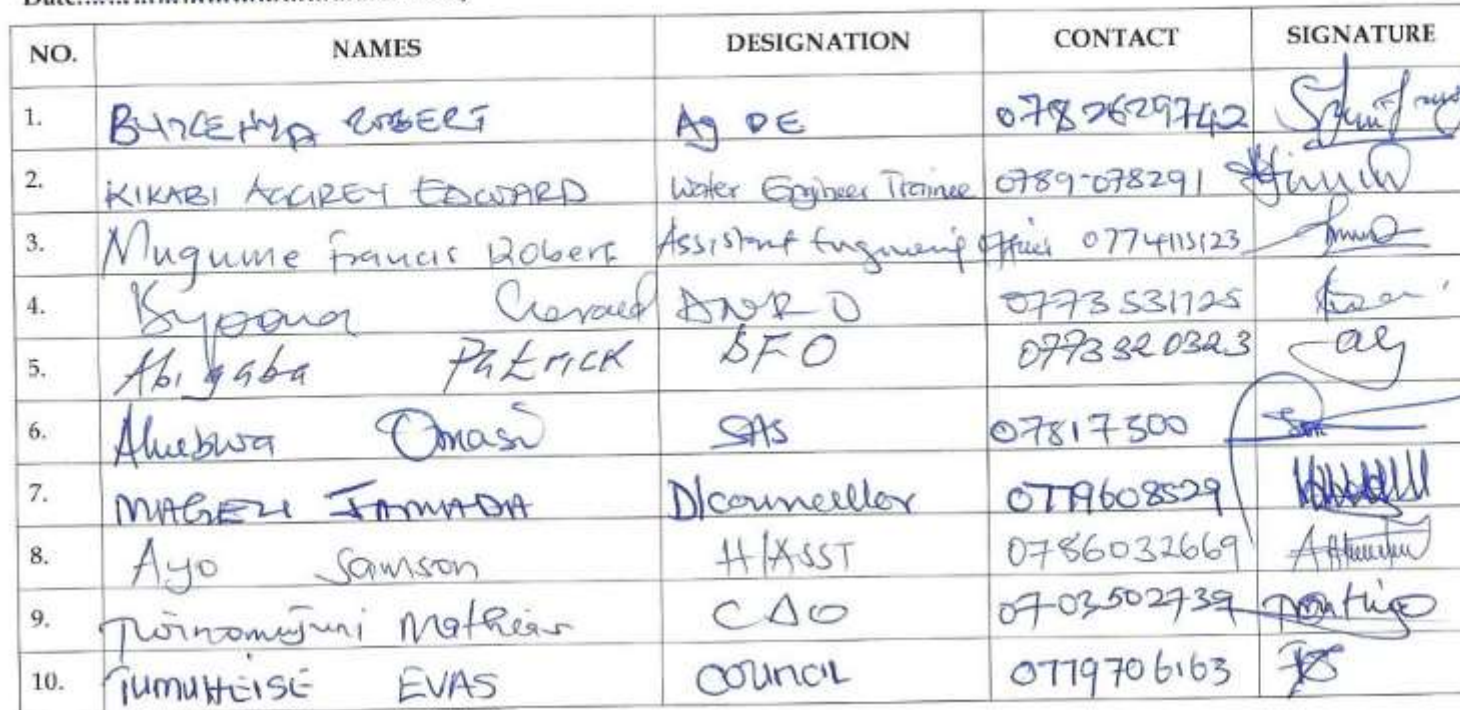 NO. NAMES DESIGNATION CONTACT SIGNATURE
1. ROBERT Ag DE 0782629742
2. KIKABI AGGREY EDWARD Water Engineer Trainee 0789-078291
3. Mugume Francis Robert Assistant Engineering Officer 0774115123
4. Gerald DNRO 0773531125
5. Abigaba Patrick DFO 0773320323
6. SAS 07817300
7. MAGEZI JAMADA D/councellor 0779608529
8. Ayo Samson H/ASST 0786032669
9. Mathias CAO 07-03502739
10. TUMUHEISE EVAS COUNCIL 0779706163